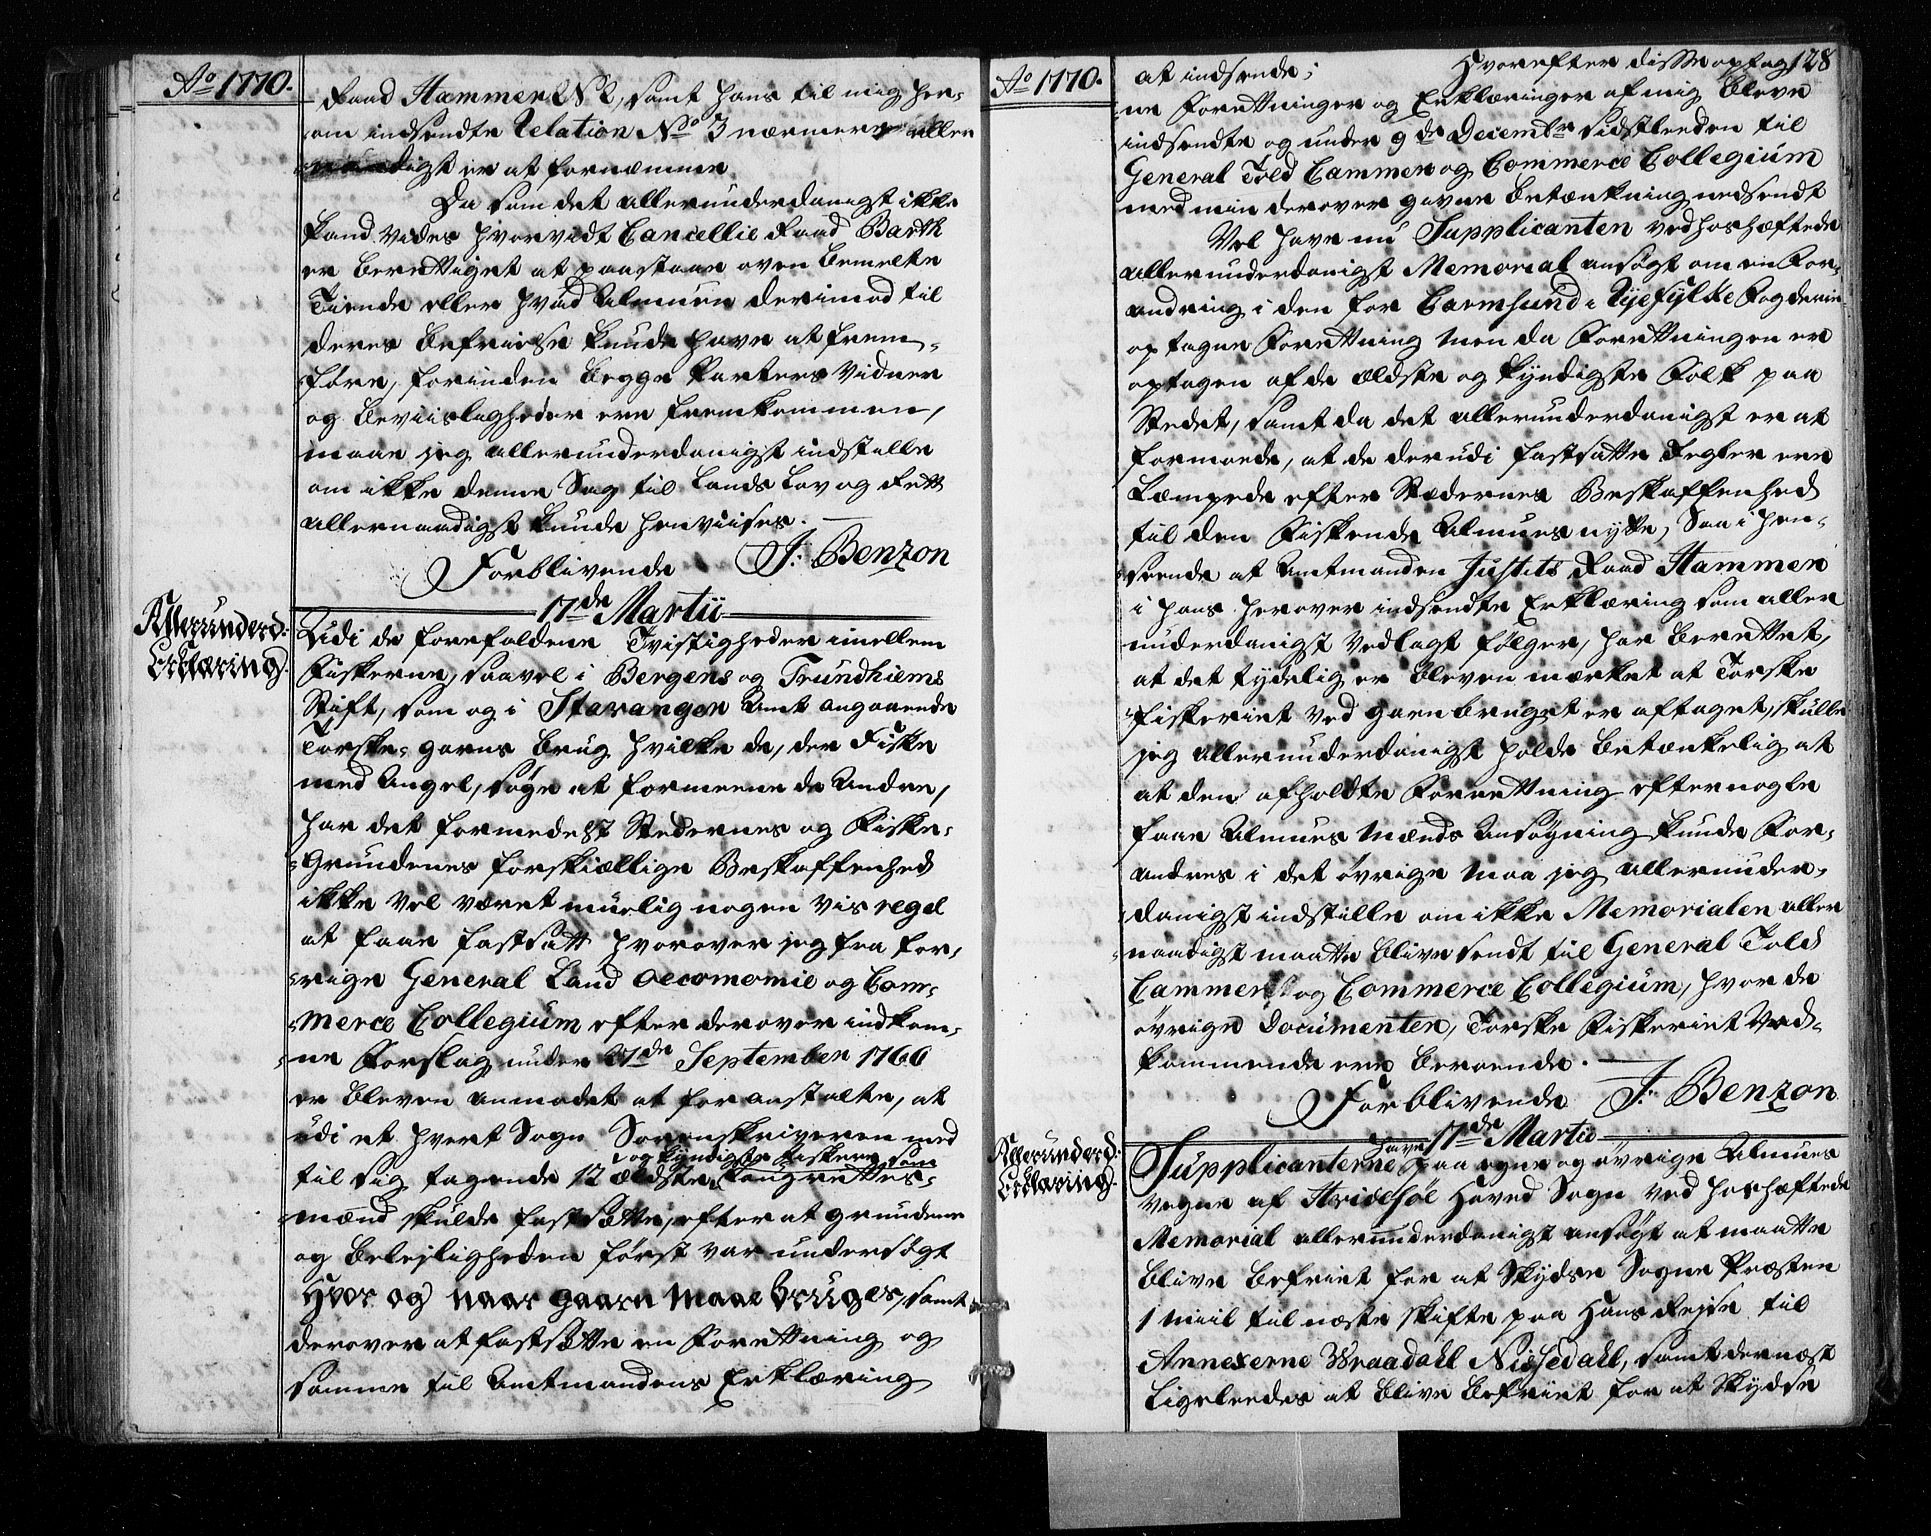 Ao 1770.
Raad Hammer No 2, samt hans til mig her-
om indsendte Relation No 3 nærmere aller
naadigst er at fornemme
Da som det allerunderdanigst ikke
kand vides hvorvidt Cancellie Raad Barth
er berettiget at paastaae oven bemelte
Tiende eller hvad Almuen derimod til
deres befrielse kunde have at frem-
føre, forinden begge Parters Vidner
og beviisligheder ere fremkommen,
maae jeg allerunderdanigst indstille
om ikke denne Sag til Lands Lov og Rett
allernaadigst kunde henviises.
Forblivende J: Benzon
17de Martii
Allerunderd:
Erklæring.
Udi de forefaldene Tvistigheder imellem
Fiskerne, saavel i Bergens og Trundhiems
Stift, som og i Stavanger Amt angaaende
Torske-garns brug hvilke de, der Fiske
med Angel, søge at formeene de Andre,
har det formedelst Stedernes og Fiske-
Grundenes forskiællige Beskaffenhed
ikke vel været muelig nogen vis regel
at faae fastsatt hvorover jeg fra for-
rige General Land Oeconomie og Com-
merce Collegium efter derover indkom-
ne Forslag under 27de September 1766
er bleven anmodet at foranstalte, at
udi et hvert Sogn Sorenskriveren med
og kyndigste Fiskere som
til sig tagende 12 ældste Laugrettes-
mænd skulde fastsætte, efter at grundene
og beleiligheden først var undersøgt
Hvor og naar gaarn maae bruges, samt
derover at fastsætte en Forettning og
samme til Amtmandens Erklæring
Ao 1770.
128
at indsende; Hvorefter disse optag-
ne Forettninger og Erklæringer af mig bleve
indsendte og under 9de Decembr sidstleden til
General Told Cammer og Commerce Collegium
med min derover givne betænkning nedsendt
Vel have nu Supplicanten ved hoshæftede
allerunderdanigst Memorial ansøgt om en For-
andring i den for Carmsund i Ryefylke Fogderie
optagne Forettning men da Forettningen er
optagen af de ældste og kyndigste Folk paa
Stedet, samt da det allerunderdanigst er at
formode, at de derudi fastsatte Regler ere
Læmpede efter Stædernes Beskaffenhed
til den Fiskende Almues nytte, Saa i hen-
seende at Amtmanden Justits Raad Hammer
i hans herover indsendte Erklæring som aller
underdanigst vedlagt følger, har berettet,
at det tydelig er bleven mærket at Torske
fiskeriet ved garnbruget er aftaget, skulle
jeg allerunderdanigst holde betænkelig at
at den afholdte Forrettning efter nogle
faae Almues Mænds Ansøgning kunde For-
andres i det øvrige maa jeg allerunder-
danigst indstille om ikke Memorialen aller
naadigst maatte blive sendt til General Told
Cammer og Commerce Collegium, hvor de
øvrige Documenter, Torske Fiskeriet Ved-
kommende ere beroende.
Forblivende J: Benzon
17de Martii
Allerunderd:
Erklæring.
have
Supplicanterne paa egne og øvrige Almues
vegne af Hvidesøe Hoved Sogn ved hoshæftede
Memorial allerunderdanigst ansøgt at maatte
blive befriet for at Skydse Sogne Præsten
1 miil til næste skifte paa Hans Rejse til
Annexerne Vraadahl Nissedahl, samt dernæst
Ligeleedes at blive befriet for at Skydse